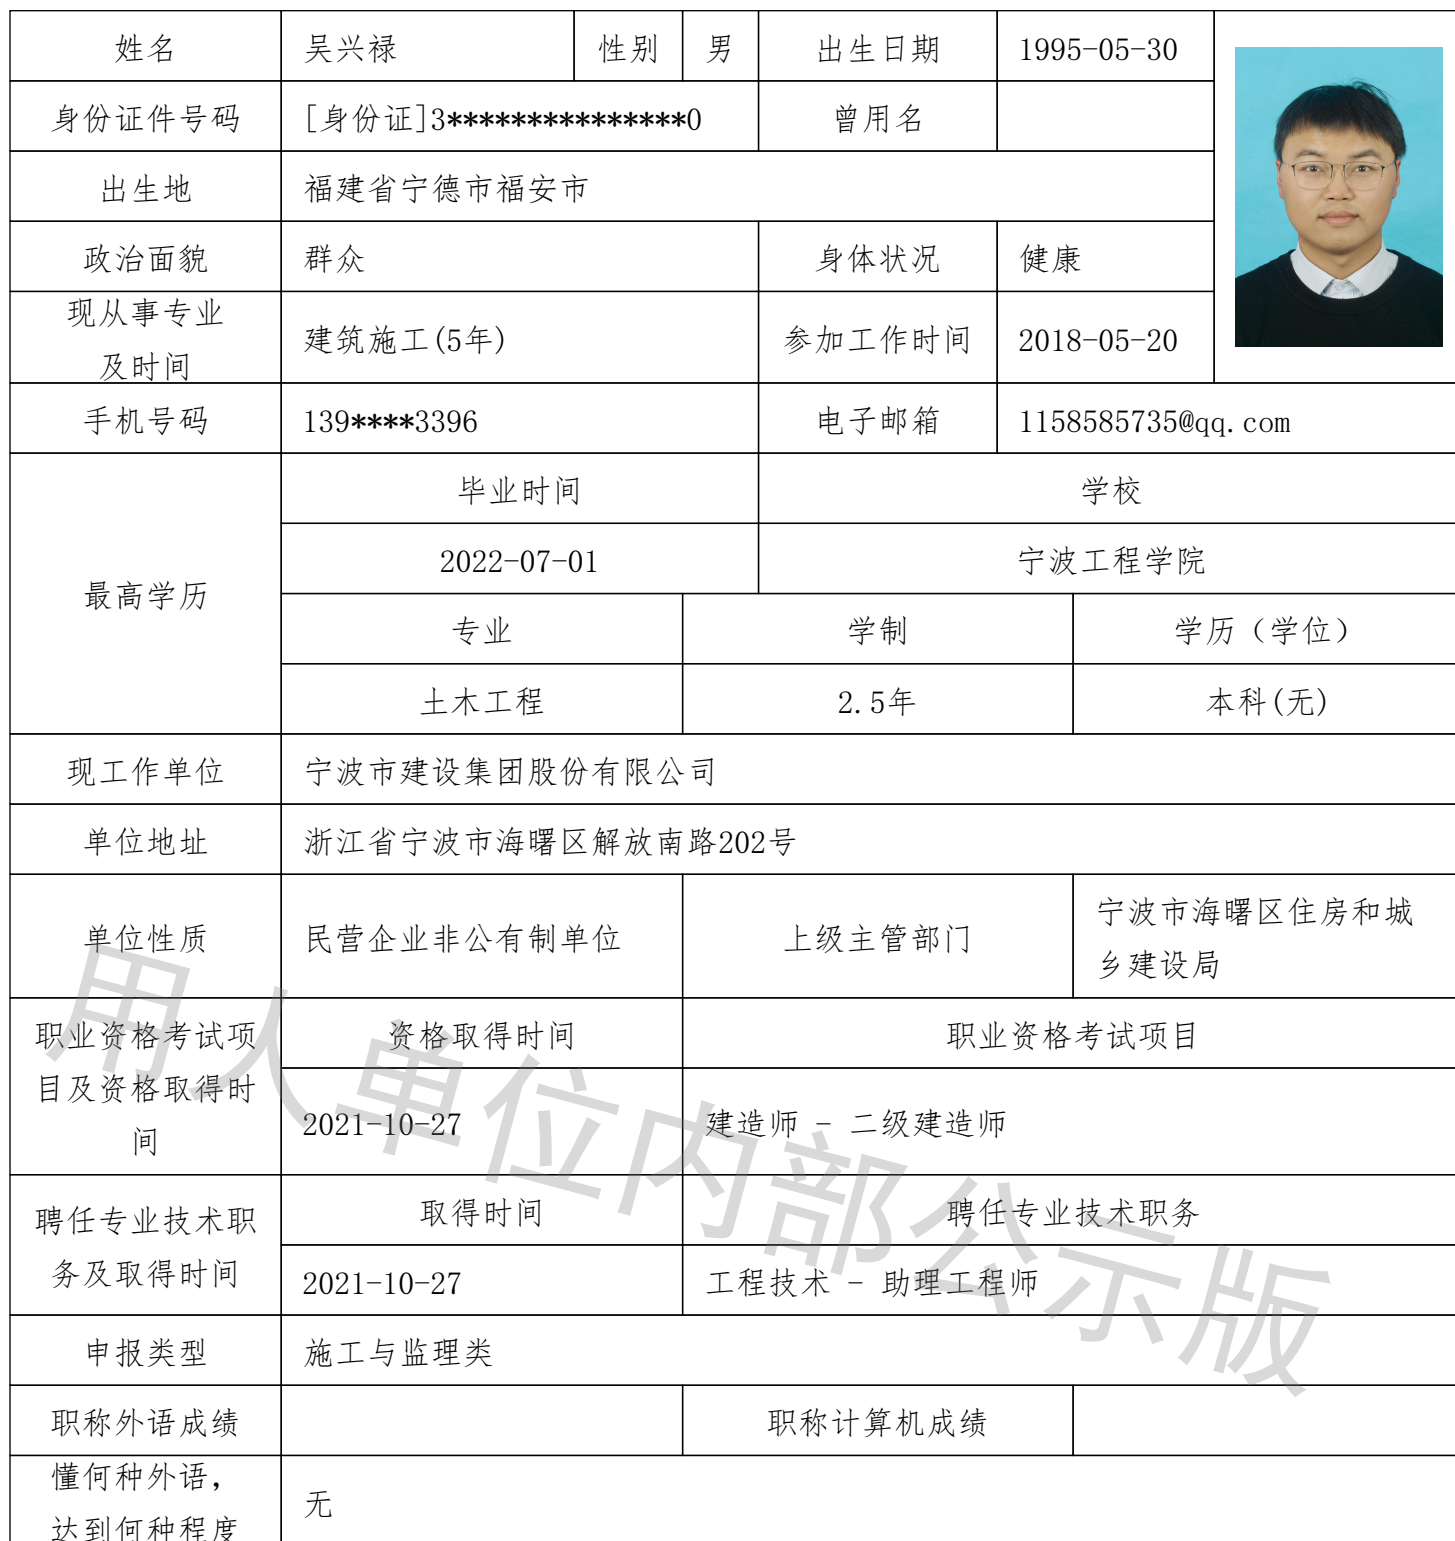 姓名 吴兴禄 性别 男 出生日期 1995-05-30
身份证件号码 [身份证]3***************0 曾用名
出生地 福建省宁德市福安市
政治面貌 群众 身体状况 健康
现从事专业
及时间
建筑施工(5年) 参加工作时间 2018-05-20
手机号码 139****3396 电子邮箱 1158585735@qq.com
最高学历
毕业时间 学校
2022-07-01 宁波工程学院
专业 学制 学历（学位）
土木工程 2.5年 本科(无)
现工作单位 宁波市建设集团股份有限公司
单位地址 浙江省宁波市海曙区解放南路202号
单位性质 民营企业非公有制单位 上级主管部门
宁波市海曙区住房和城
乡建设局
职业资格考试项
目及资格取得时
间
资格取得时间 职业资格考试项目
2021-10-27 建造师 - 二级建造师
聘任专业技术职
务及取得时间
取得时间 聘任专业技术职务
2021-10-27 工程技术 - 助理工程师
申报类型 施工与监理类
职称外语成绩 职称计算机成绩
懂何种外语，
达到何种程度
无
用人单位内部公示版